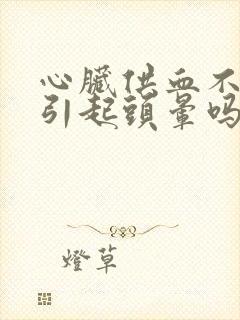 心臟供血不
引起頭暈吗
燈草